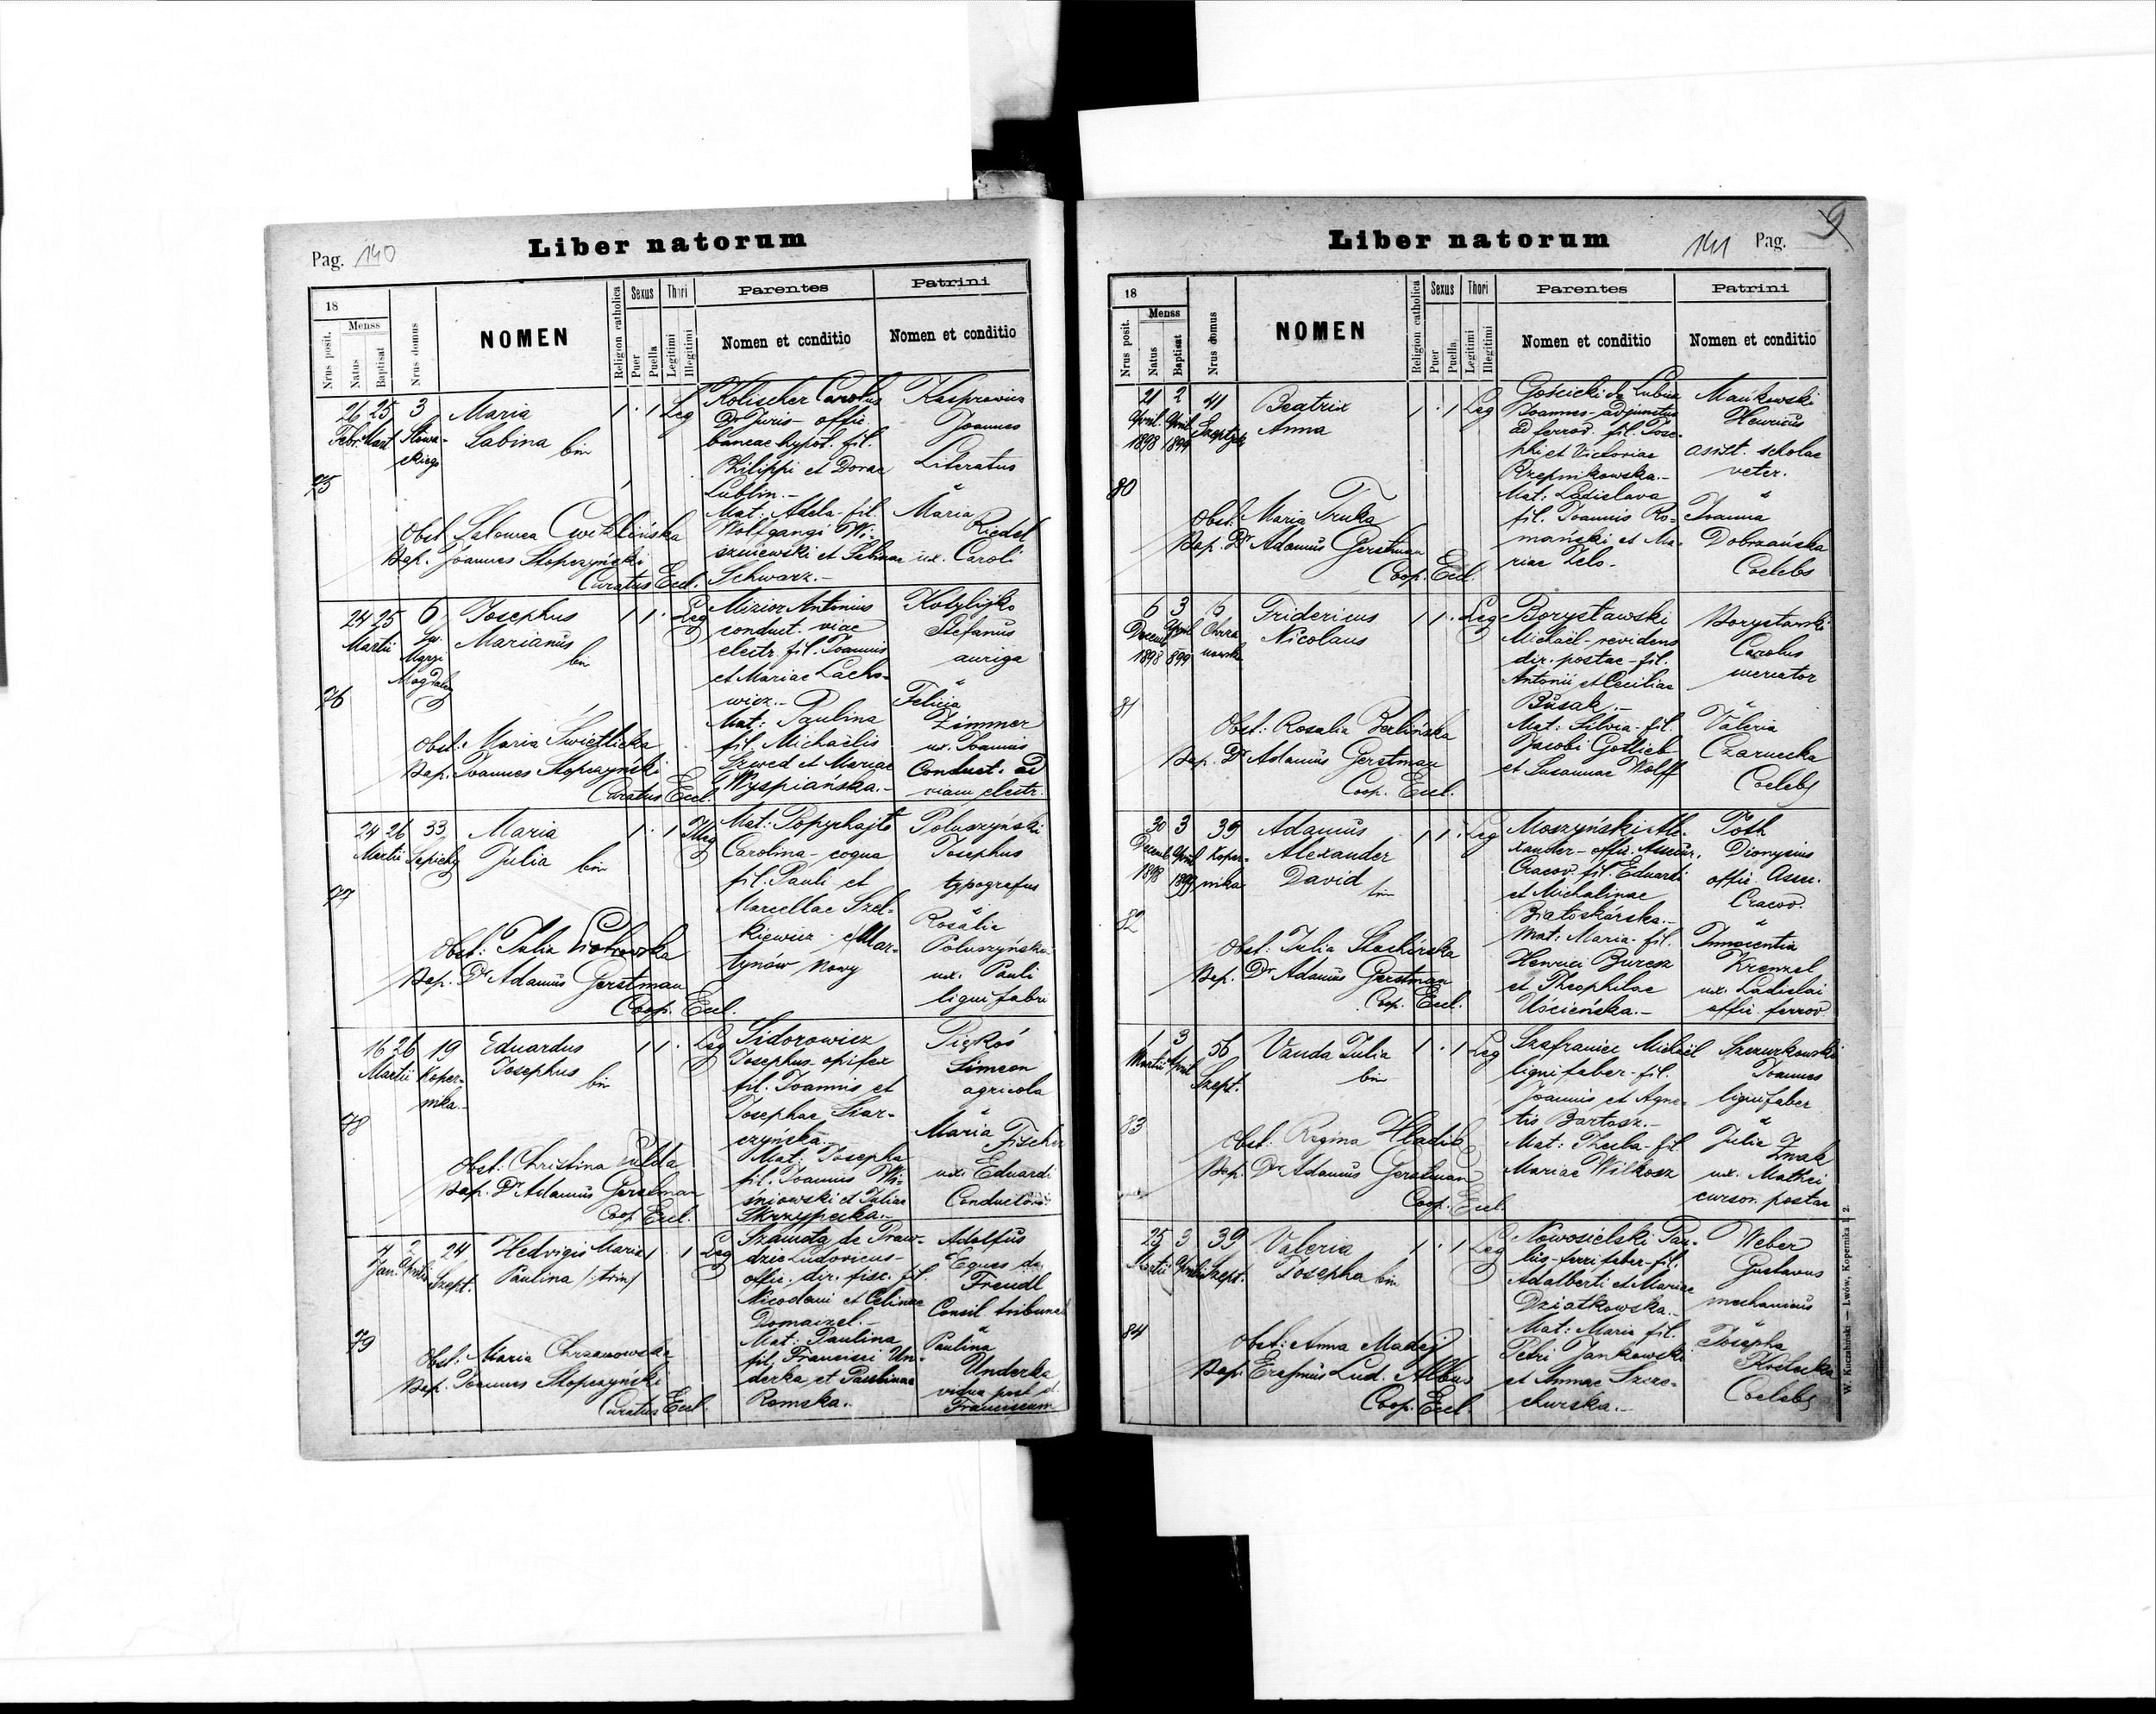 Pag. 140
Liber natorum
18
Nrus posit.
Menss
Natus
Baptisat
Nrus domus
NOMEN
Religion catholica
Sexus
Puer
Puella
Thori
Legitimi
Illegitimi
Parentes
Nomen et conditio
Patrini
Nomen et conditio
75
26 25 3
Febr. Mart Słowa-
ckiego
Maria
Sabina bin
1 . 1 Leg
Obst. Salomea Cwiklińska
Bap. Joannes Stopczyński
Curatus Eccl.
Kolischer Carolus
Dr Juris - offic.
bancae hypot. fil.
Philippi et Dorae
Lublin.-
Mat: Adela fil.
Wolfgangi Wi-
szniewski et Sabinae
Schwarz.-
Kasprowicz
Joannes
Literatus
Maria
Riedel
ux. Caroli
76
24 25 6
Martii Sw.
Maryi
Magdaleny
Josephus
Marianus
bin
1 1 . Leg
Obst: Maria Świetlicka
Bap. Joannes Stopczyński
Curatus Eccl.
Mizior Antonius
conduct. viae
electr. fil. Joannis
et Mariae Lacho-
wicz.-
Mat: Paulina
fil. Michaëlis
et Mariae
Wyspiańska.-
Stefanus
auriga
Felicia
Zimmer
ux. Joannis
Conduct. ad
viam electr.
77
24 26 33
Martii Sapiehy
Maria
Julia bin
1 . 1 Illeg
Obst: Julia Piotrowska
Bap. Dr Adamus Gerstman
Coop. Eccl.
Mat: Popychajło
Carolina - coqua
fil. Pauli et
Marcellae Szel-
kiewicz - Mar-
tynów Nowy
Poluszyński
Josephus
typografus
Rosalia
Poluszyńska
ux. Pauli
lignifabri
78
16 26 19
Martii Koper-
nika.-
Eduardus
Josephus bin
1 1 . Leg
Obst: Christina Pulda
Bap. Dr Adamus Gerstman
Coop. Eccl.
Sidorowicz
Josephus opifex
fil. Joannis et
Josephae Siar-
czyńska.-
Mat: Josepha
fil. Joannis Wi-
śniowski et Juliae
Skrzypecka.-
Piękoś
Simeon
agricola
Maria Fischer
ux. Eduardi
Conductoris
79
7 2 24
Jan. Aprilis Szept.
Hedvigis Maria
Paulina /trin/
1 . 1 Leg
Obst: Maria Chrzanowska
Bap. Joannes Stopczyński
Curatus Eccl.
Szamota de Praw-
dzic Ludovicus -
offic. dir. fisc. fil.
Nicodemi et Celinae
Domaizel.-
Mat: Paulina
fil. Francisci Un-
derka et Paulinae
Romska.-
Adolfus
Eques de
Freudl
Consil. tribunal
Paulina
Underka
vidua post d.
Franciscum
Liber natorum
141 Pag. 9
18
Nrus posit.
Menss
Natus
Baptisat
Nrus domus
NOMEN
Religion catholica
Sexus
Puer
Puella
Thori
Legitimi
Illegitimi
Parentes
Nomen et conditio
Patrini
Nomen et conditio
80
21 2 41
April. April Szeptyc
1898 1899
Beatrix
Anna
1 . 1 Leg
Obst. Maria Truka
Bap. Dr Adamus Gerstman
Coop. Eccl.
Gościcki de Lubicz
Joannes - adjunctus
ad ferrov. fil. Jose-
phi et Victoriae
Rzepnikowska.-
Mat: Ladislava
fil. Joannis Ro-
mański et Ma-
riae Zels.-
Mańkowski
Henricus
assist. scholae
veter.
Joanna
Dobrzańska
Coelebs
81
6 3 5
Decemb April Chrza
1898 899 nowska
Fridericus
Nicolaus
1 1 . Leg
Obst: Rosalia Berlińska
Bap. Dr Adamus Gerstman
Coop. Eccl.
Borysławski
Michaël - revidens
dir. postae - fil.
Antonii et Ceciliae
Busak.-
Mat: Silvia fil.
Jacobi Gottlieb
et Susannae Wolff
Borysławski
Carolus
mercator
Valeria
Czarnecka
Coelebs
82
30 3 39
Decemb April Koper-
1898 1899 nika
Adamus
Alexander
David
bin
1 1 . Leg
Obst: Julia Stachórska
Bap. Dr Adamus Gerstman
Coop. Eccl.
Moszyński Ale-
xander - offic. Assecur.
Cracov. fil. Eduardi
et Michalinae
Białoskórska.-
Mat: Maria - fil.
Henrici Buresz
et Theophilae
Uścieńska.-
Poth
Dionysius
offic. Assec.
Cracov.
Innocentia
Krenzel
ux. Ladislai
offic. ferrov
83
1 3 56
Martii April Szept.
Vanda Julia
bin
1 . 1 Leg
Obst: Regina Hladik
Bap. Dr Adamus Gerstman
Coop. Eccl.
Szafraniec Michaël
lignifaber - fil.
Joannis et Agne-
tis Bartosz.-
Mat: Thecla - fil.
Mariae Wilkosz
Szczurkowski
Joannes
lignifaber
Julia Żmak
ux. Mathei
cursor. postae
84
25 3 39
Martii Aprilis Szept.
Valeria
Josepha bin
1 . 1 Leg
Obst: Anna Madej
Bap. Erasmus Lud. Albus
Coop. Eccl.
Nowosielski Pau-
lus - ferrifaber - fil.
Adalberti et Mariae
Dziatkowska.-
Mat: Maria fil.
Petri Jankowski
et Annae Szcze-
churska.-
Weber
Gustavus
mechanicus
Josepha
Coelebs
W. Kuczabiński — Lwów, Kopernika l. 2.